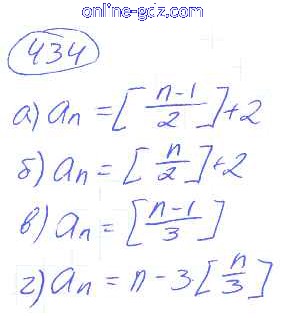 online-gdz.com
434
а) aₙ = [(n-1)/2] + 2
б) aₙ = [n/2] + 2
в) aₙ = [(n-1)/3]
г) aₙ = n - 3·[n/3]